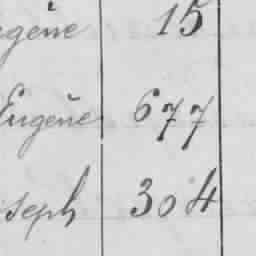 gène 15
Eugène 677
seph 304